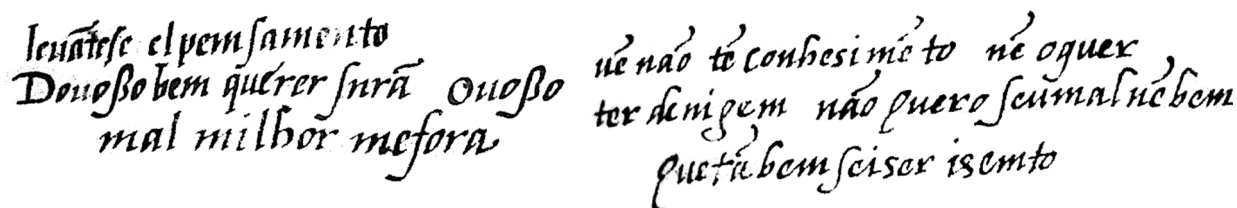 leuãtese el pemsamento
Do uoßo bem querer snrã O uoßo
mal milhor me fora
uẽ não tẽ conhesimẽto nẽ o quer
ter de nigem não quero seu mal nẽ bem
que tãbem sei ser isemto